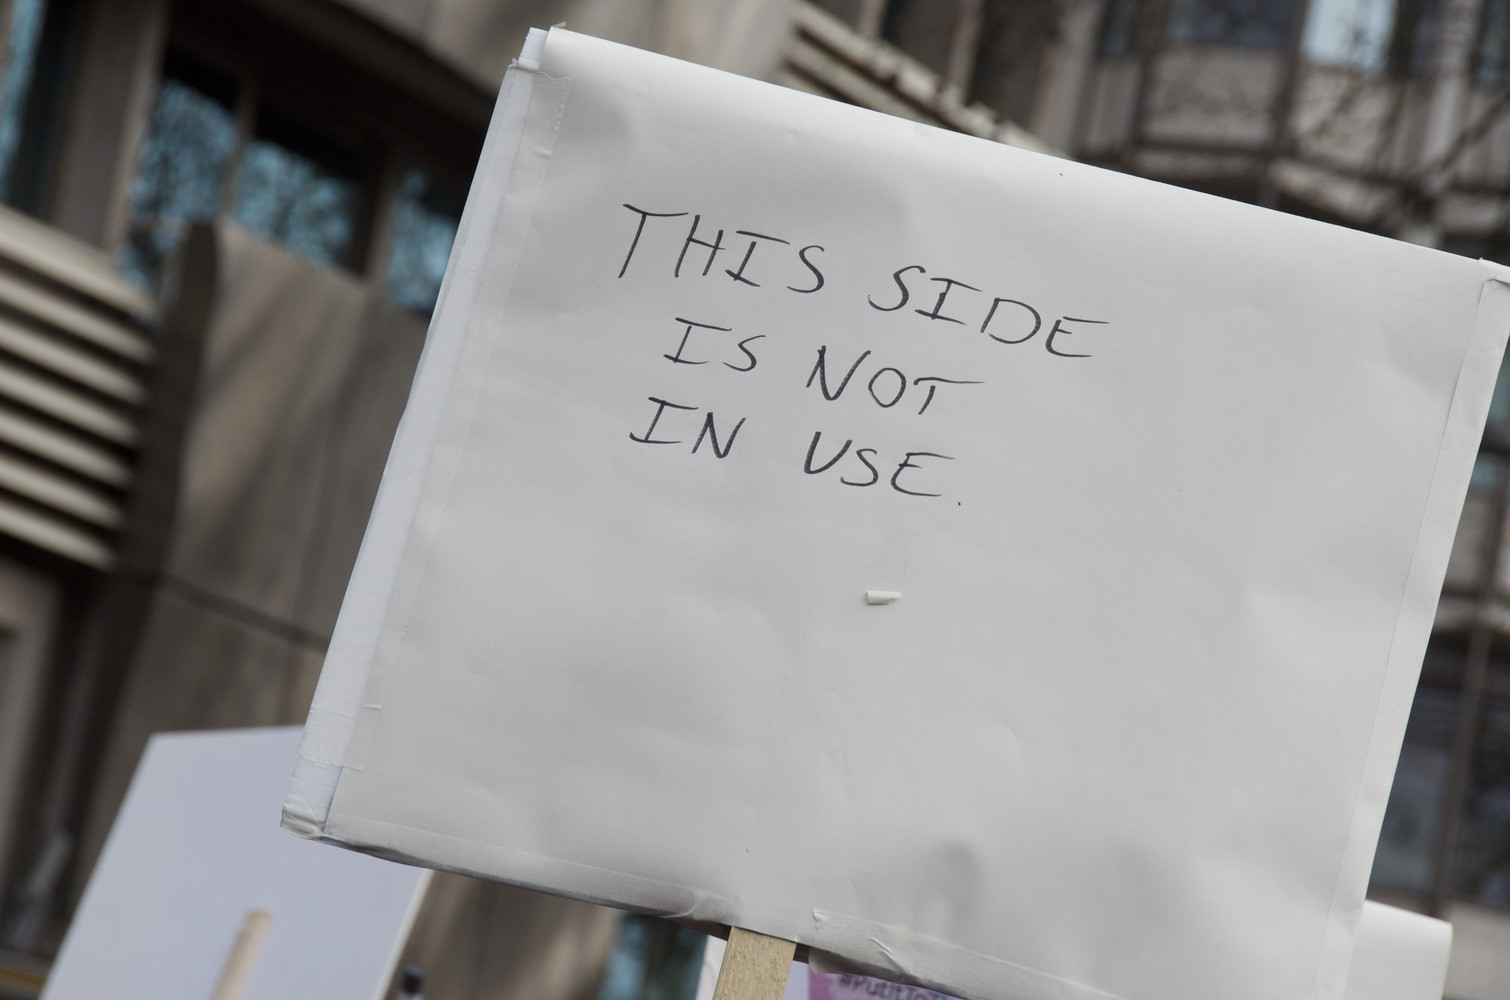 THIS SIDE
IS NOT
IN USE.